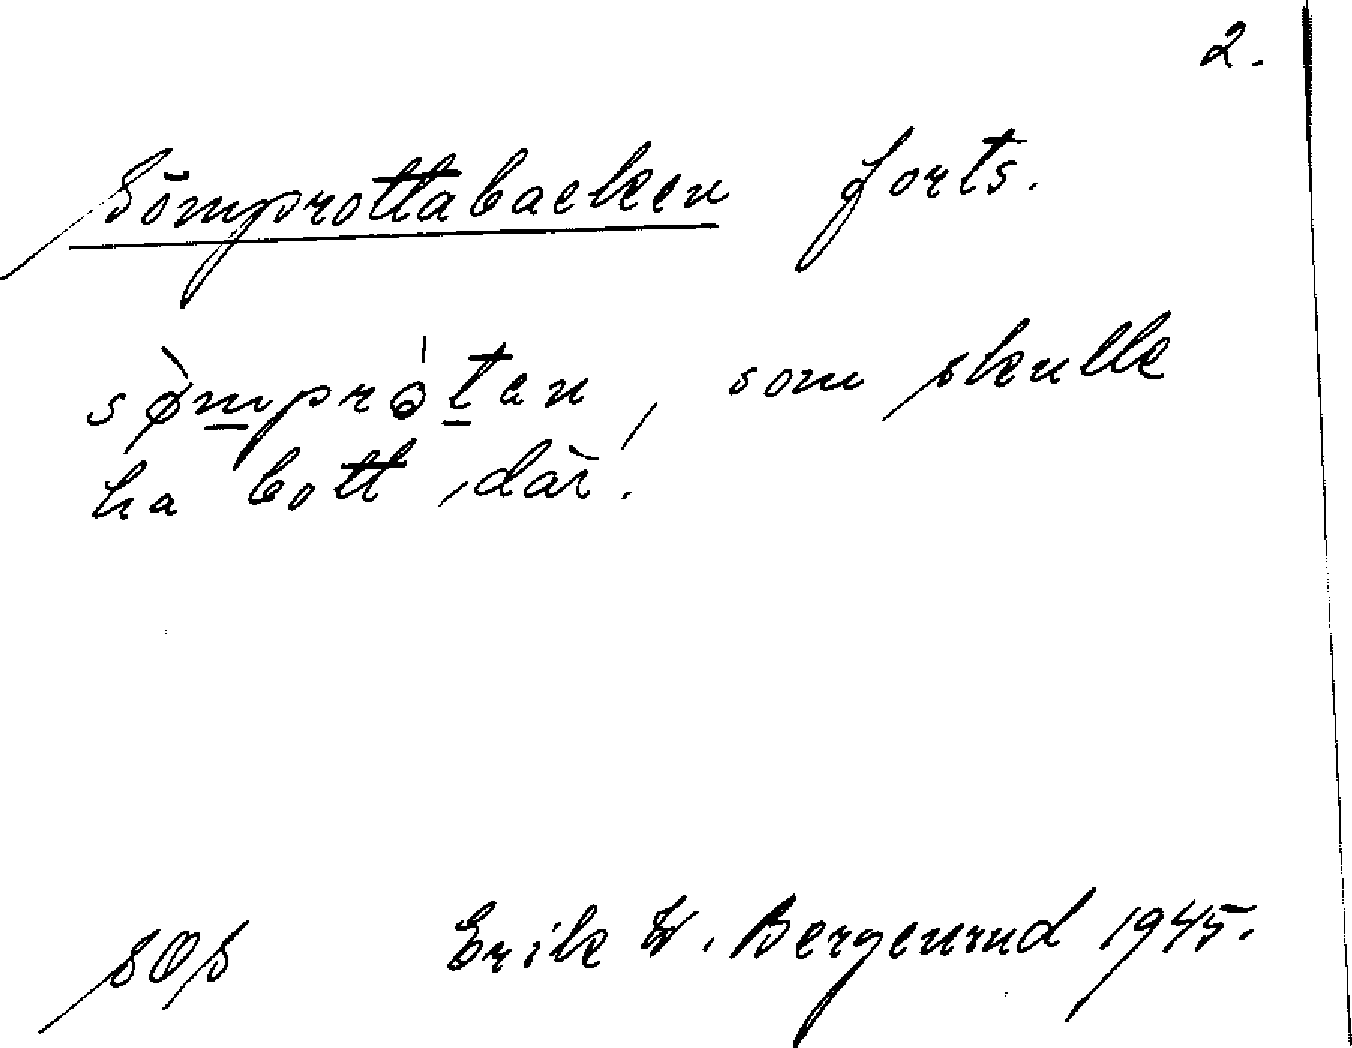 2.
Sömprottabacken forts.
sø̀mprò̩ten, som skulle
ha bott där.
SOS Erik W. Bergenrud 1945.